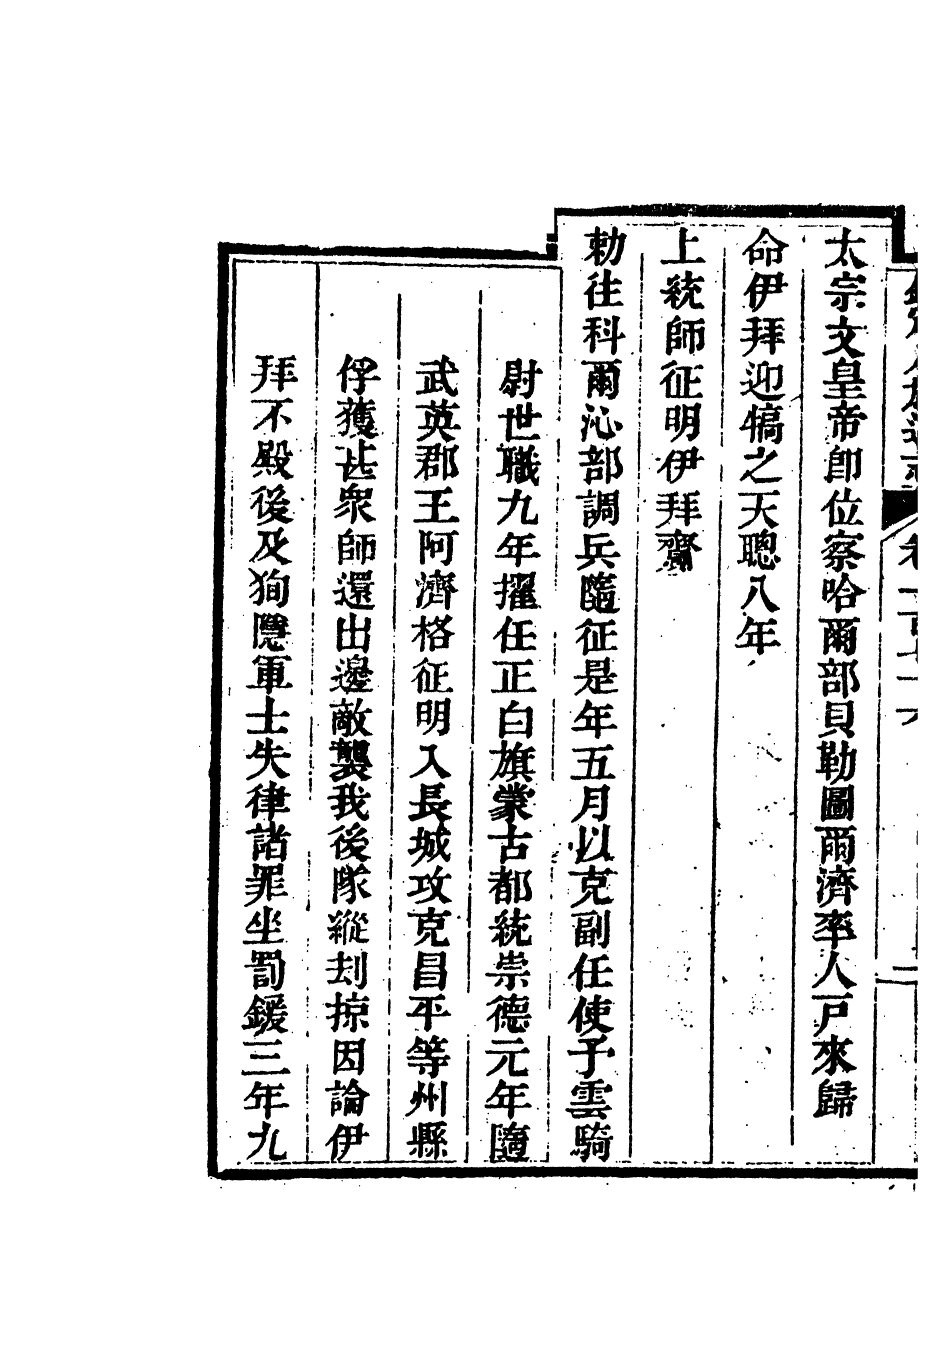 太宗文皇帝卽位察哈爾部貝勒圖爾濟率人戸來歸
命伊拜迎犒之天聰八年
上統師征明伊拜齎
勅往科爾沁部調兵隨征是年五月以克副任使予雲騎
尉世職九年擢任正白旗蒙古都統崇德元年隨
武英郡王阿濟格征明入長城攻克昌平等州縣
俘獲甚衆師還出邊敵襲我後隊縱刦掠因論伊
拜不殿後及狥隱軍士失律諸罪坐罰鍰三年九